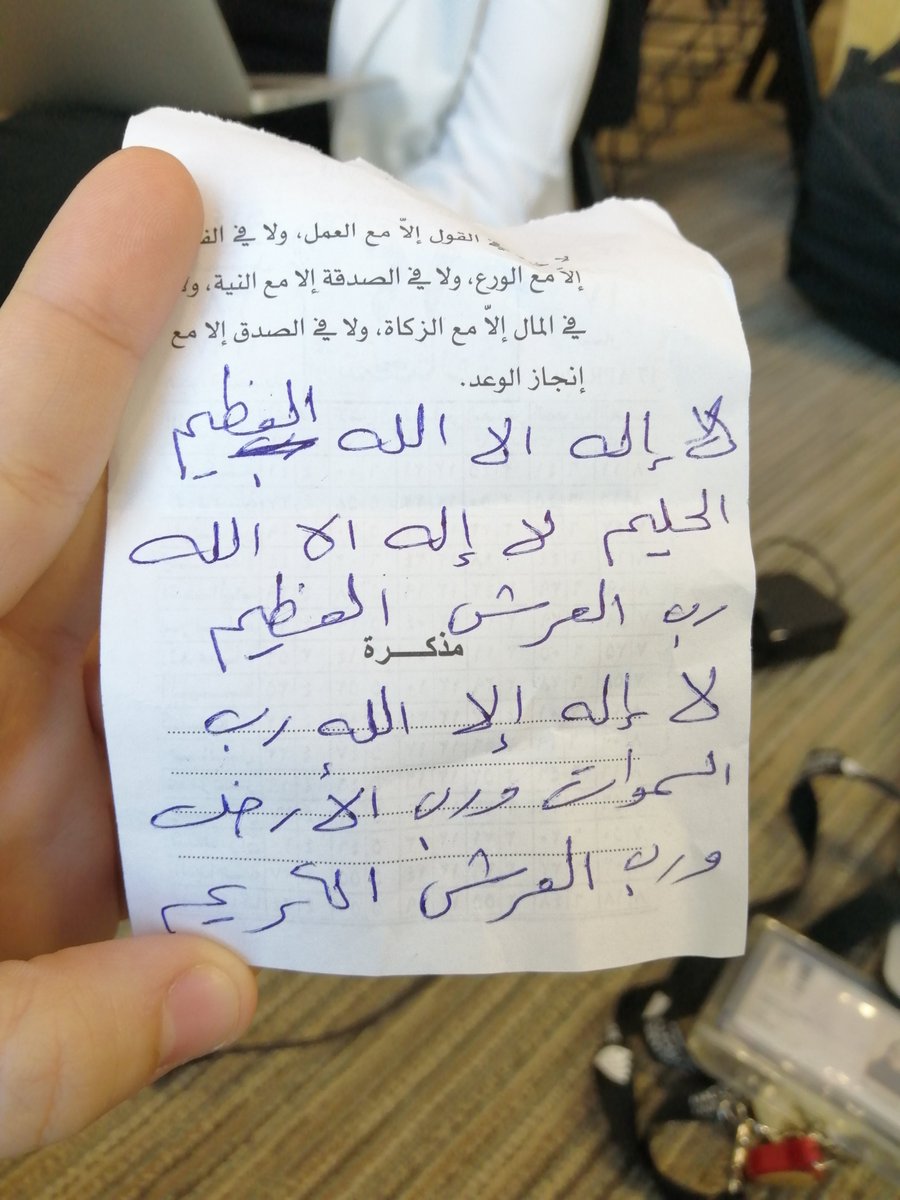 القول إلاّ مع العمل، ولا في
إلاّ مع الورع، ولا في الصدقة إلا مع النية، ولا
في المال إلاّ مع الزكاة، ولا في الصدق إلا مع
إنجاز الوعد.
لا إله الا الله العظيم
الحليم لا إله الا الله
رب العرش العظيم
مذكـــرة
لا إله إلا الله رب
السموات ورب الأرض
ورب العرش الكريم